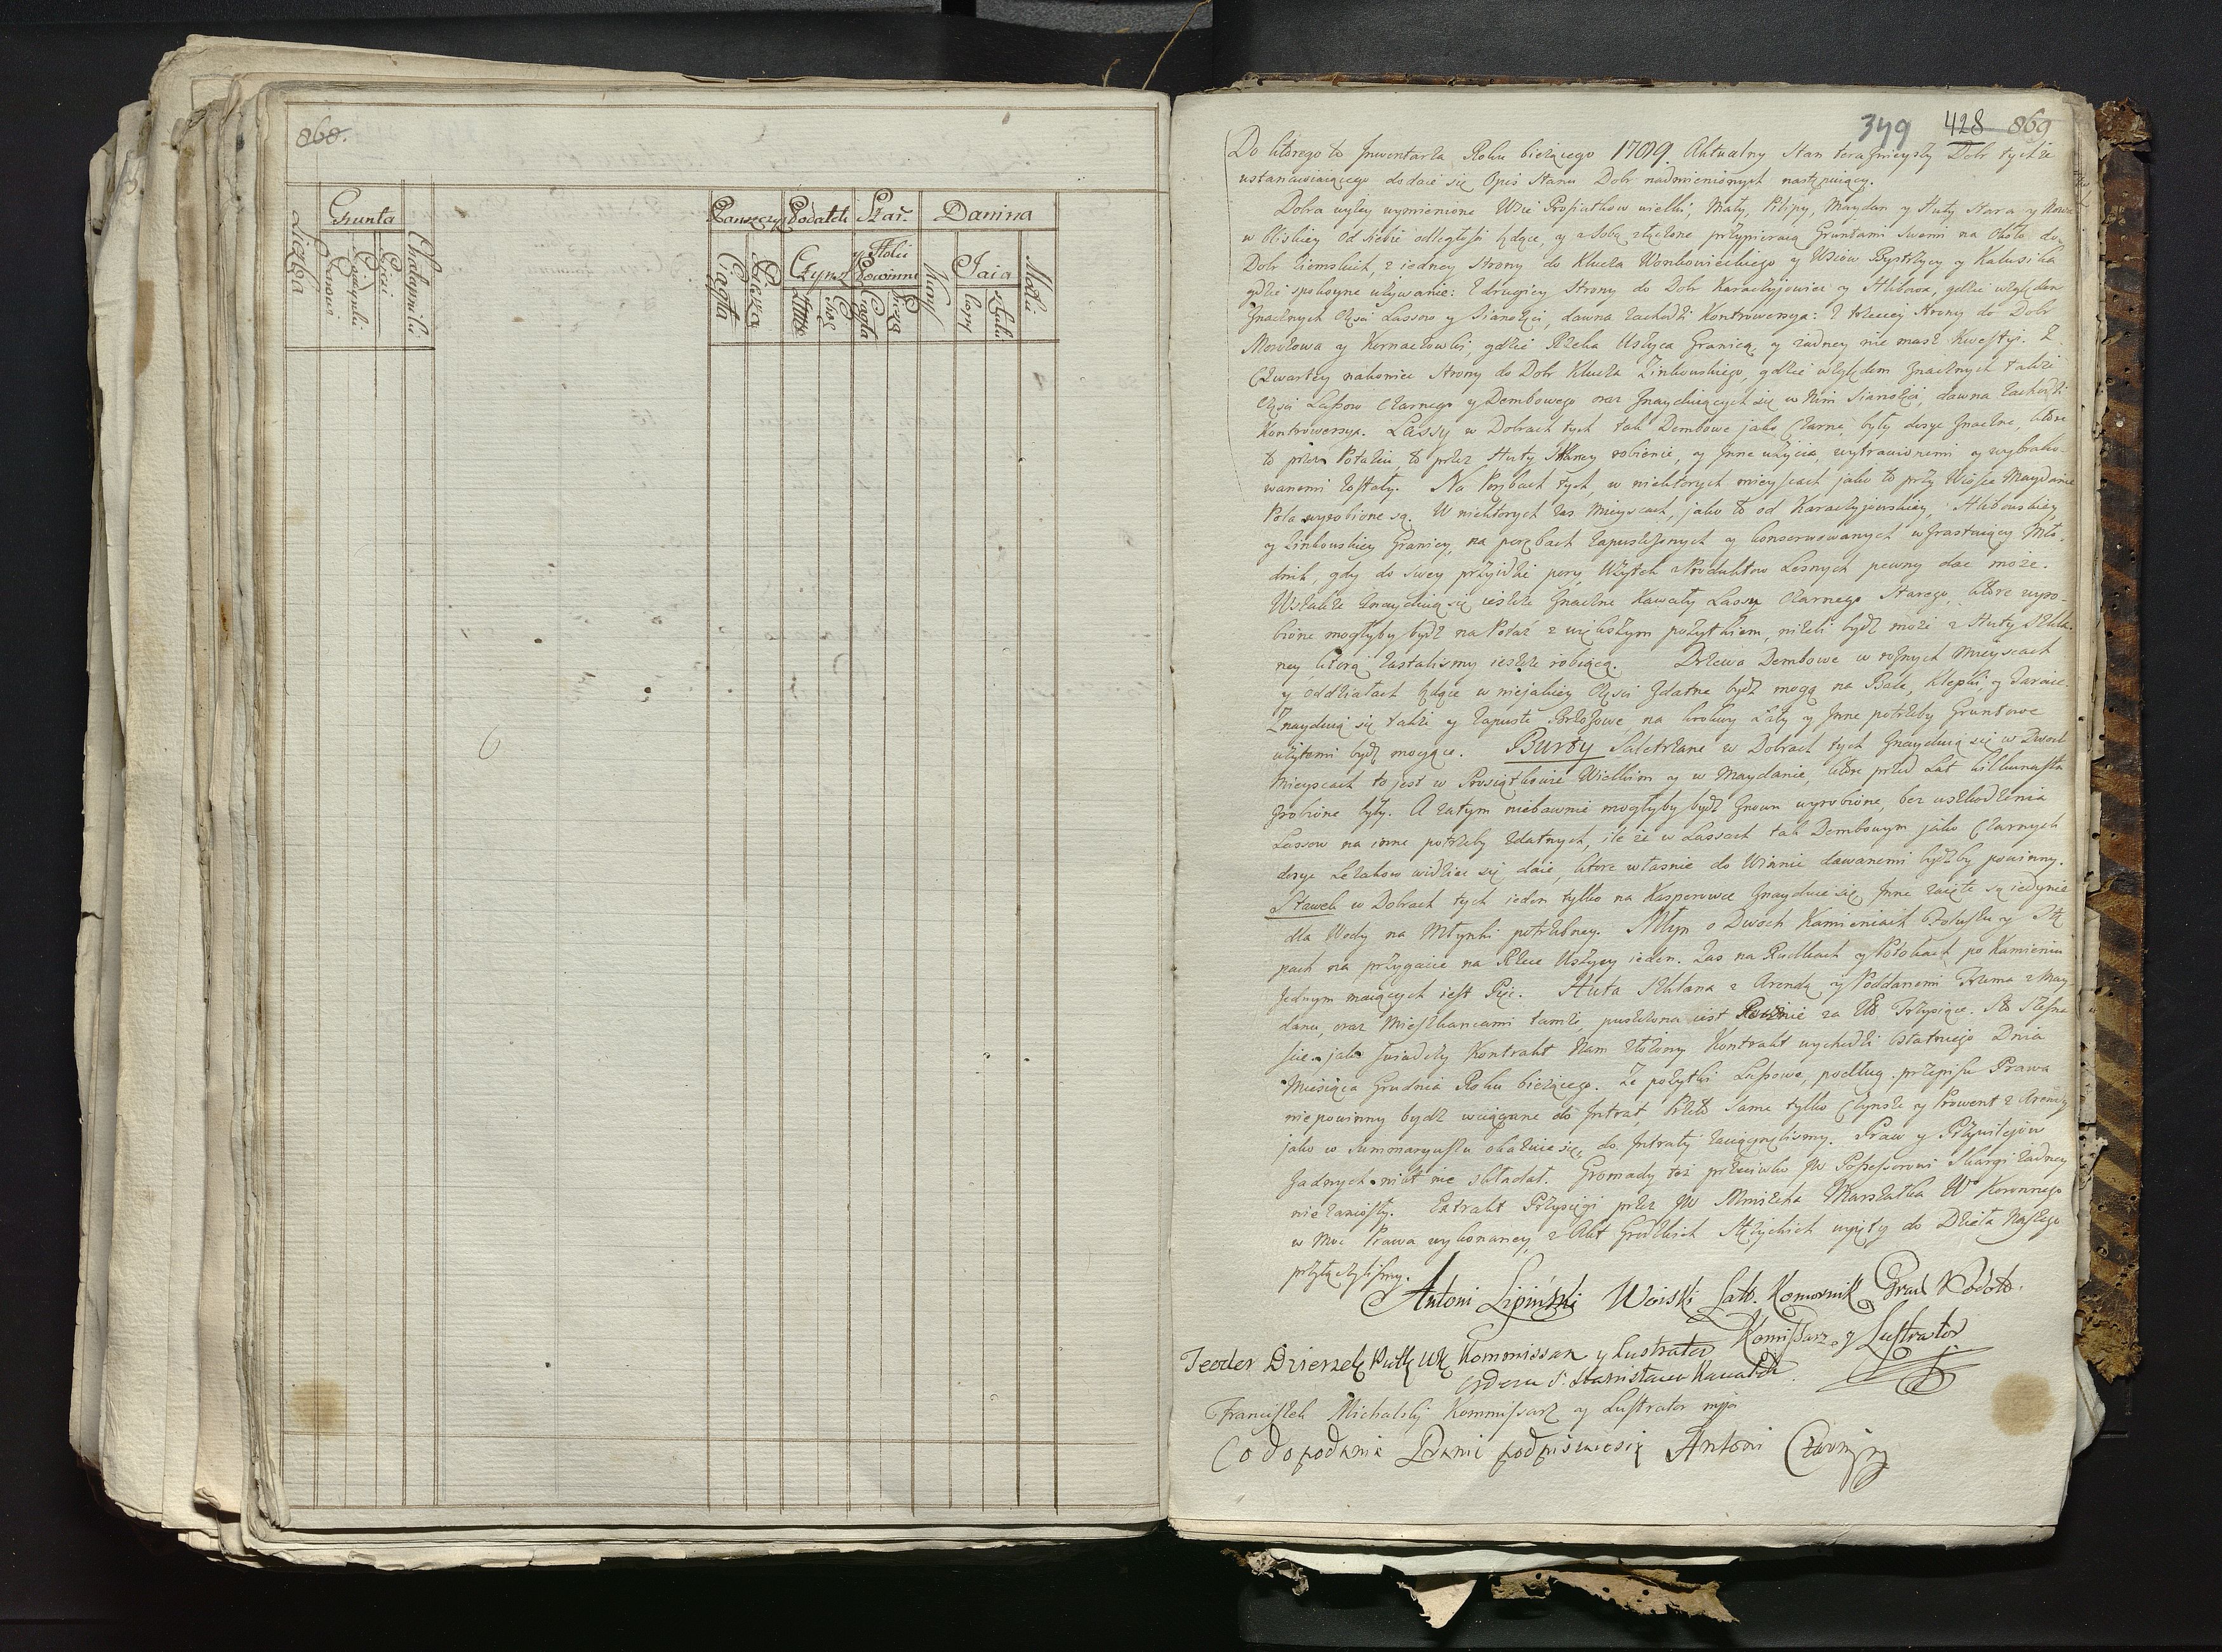 868.
Liczba
Grunta
Ciągli
Pojedynki
Pieszi
Chałupniki
Pańszczyzna
Ciągła
Piesza
Podatek
Czynsz
Szar.
y Stolu
Powinne
Ciągła
Piesza
Danina
Kapł.
Jaia
kopy
sztuki
Motki
6
349 428 869
Do ktorego to Inwentarza Roku bieżącego 1789. Aktualny Stan teraznieyszy Dobr tychże
ustanawiaiącego dodaie się Opis Stanu Dobr nadmienionych następuiący.
Dobra wyżey wymienione Wsie Prosiatkow wielki, Mały, Pilipy, Maydan y Huty Stara y Nowa
w bliskiey od siebie odległości będące, y z sobą złączone przypieraią Gruntami swemi na około do
Dobr Ziemskich, z iedney Strony do Klucza Wonkowieckiego y Wsiow Bystrzycy y Kalusika
gdzie spokoyne używanie: Z drugiey Strony do Dobr Karaczyjowiec y Hlibowa, gdzie względem
Znacznych Częsci Lassow y Sianożęci, dawna zachodzi Kontrowersya: Z trzeciey Strony do Dobr
Morozowa y Kornaczowki, gdzie Rzeka Uszyca Granicą, y żadney nie masz Kwestyi. Z
Czwartey nakoniec Strony do Dobr Klucza Zinkowskiego, gdzie względem Znacznych także
Częsci Lassow Czarnego y Dembowego oraz Znayduiących się w Nim Sianożęci, dawna zachodzi
Kontrowersya. Lassy w Dobrach tych tak Dembowe jako Czarne, były dosyc Znaczne, które
to przez Potażu, to przez Huty Szkaney robienie, y Inne użycia, wytrawionemi y wybrako-
wanemi zostały. Na Porębach tych, w niektorych mieyscach jako to przy Wiosce Maydanie
Pola wyrobione są. W niektorych zas Mieyscach, jako to od Karaczyjowskiey, Hlibowskiey,
y Zinkowskiey Granicy, na porębach zapuszczonych y konserwowanych wzrastaiący Mło-
dnik, gdy do swey przyidzie pory, Użytek z Produktow Lesnych pewny dac może.
Wszakże Znayduią się ieszcze Znaczne Kawały Lassu Czarnego Starego, które wyro-
bione mogłyby bydź na Potaż z większym pożytkiem, niżeli bydź może z Huty Szkla-
ney, którą zastalismy ieszcze robiącą. Drzewa Dembowe w rożnych Mieyscach
y oddziałach będące w niejakiey Częsci Zdatne bydź mogą na Bale, Klepki, y Tarcice.
Znayduią się także y Zapusty Brzozowe, na krokwy Łaty y Inne potrzeby Gruntowe
użytemi bydź mogące. Burty Saletrzane w Dobrach tych Znayduią się w Dwoch
Mieyscach to jest w Prosiątkowie Wielkim y w Maydanie, które przed Lat kilkunastu
Zrobione były. A zatym niebawnie mogłyby bydź Znowu wyrobione, bez uszkodzenia
Lassow na inne potrzeby zdatnych, ile że w Lassach tak Dembowym jako Czarnych
dosyc Leżakow widziec się daie, które własnie do Winnic dawanemi bydźby powinny.
Stawek w Dobrach tych ieden tylko na Kasperowce Znayduie się, Inne zaięte są iedynie
dla Wody na Młynki potrzebney. Młyn o Dwoch Kamieniach Foluszu y Stę
pach na przygacie na Rzece Uszycy ieden. Zas na Rudkach y Potokach po Kamieniu
Jednym maiących iest Pięć. Huta Szklana z Arendą y Poddanemi Trzema z May-
danu, oraz Mieszkancami tamże, puszczona iest Rocznie za Zł. Trzysiące. Sto Szesna
scie. jako swiadczy Kontrakt Nam złożony. Kontrakt wychodzi Ostatniego Dnia
Miesiąca Grudnia Roku bieżącego. Że pożytki Lassowe, podług przepisu Prawa
niepowinny bydź wciągane do Intrat, Przeto Same tylko Czynsze y Prowent z Arendy
jako w Summaryuszu okazuie się, do Intraty zaciągnęlismy. Praw y Przywilejow
Żadnych nikt nie składał. Gromady też przeciwko JW Possessorowi Skargi żadney
nie zaniosły. Extrakt Przysięgi przez JW Mniszcha Marszałka W° Koronnego
w Moc Prawa wykonaney, z Akt Grodzkich wyięty do Dzieła Naszego
przyłączylismy.
Antoni Lipinski Woiski Lat. Komornik Grad Podols.
Komissarz y Lustrator
Teodor Dzierzek Pułk. Kommissarz y Lustrator
Orderu S. Stanisława Kawaler.
Franciszek Michalski Kommissarz y Lustrator mp
Co do podania Danie podpisuiesię Antoni